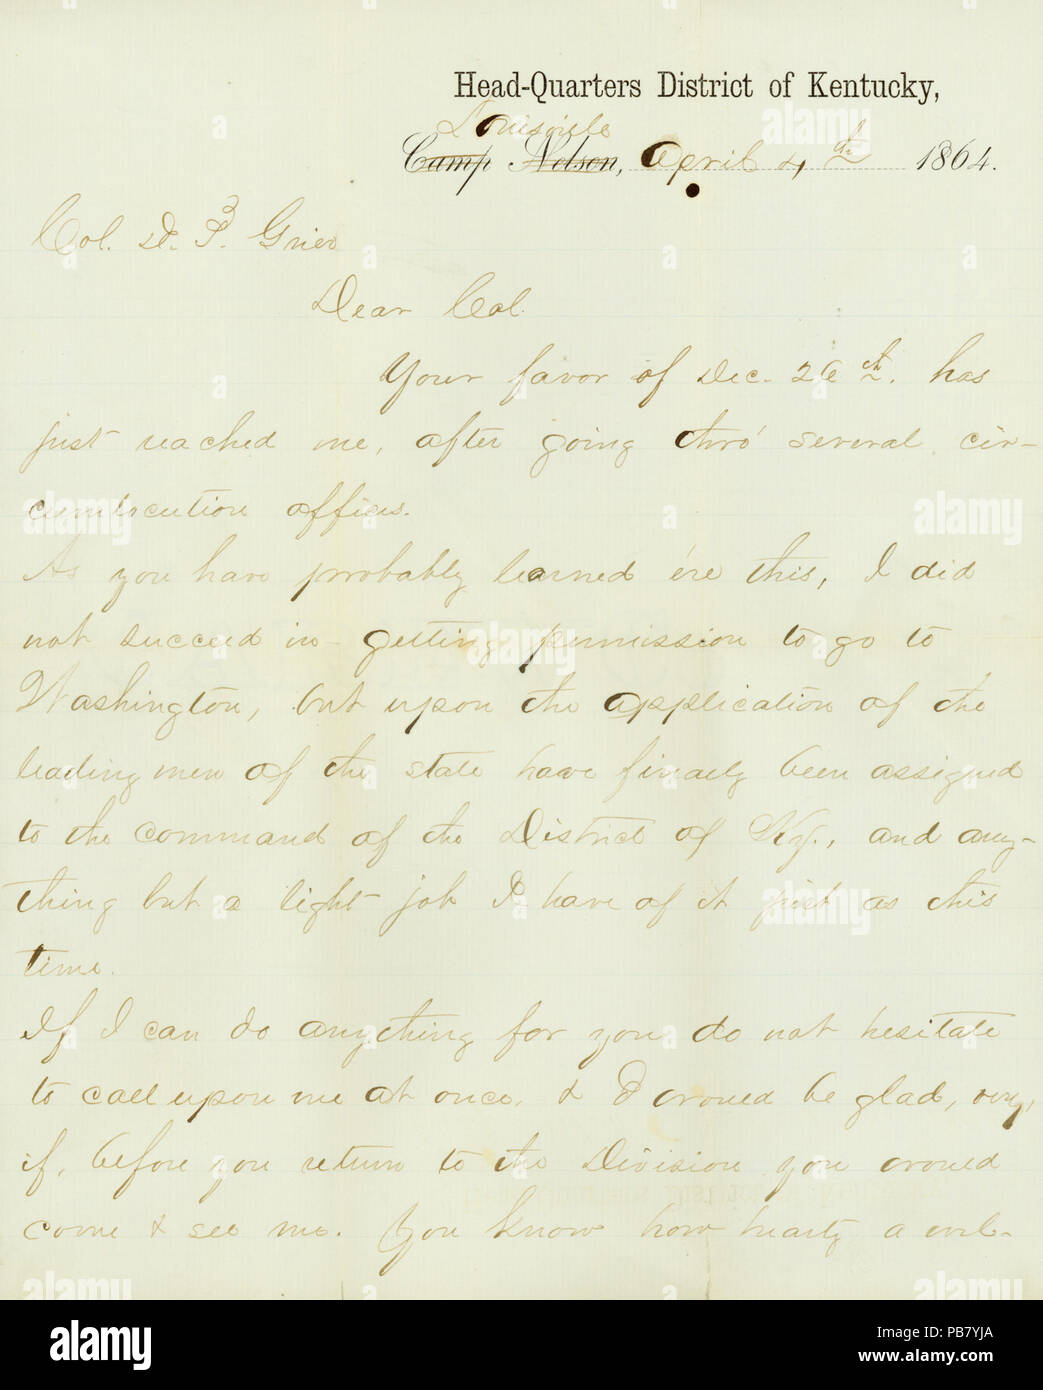 Head-Quarters District of Kentucky,
Louisville
Camp Nelson, April 4th 1864.
Col. D. P. Grier
Dear Col.
Your favor of Dec. 26th. has
just reached me, after going thro' several cir-
cumlocution offices.
As you have probably learned e're this, I did
not succeed in getting permission to go to
Washington, but upon the application of the
leading men of the state have finally been assigned
to the command of the District of Ky., and any-
thing but a light job I have of it just as this
time.
If I can do anything for you do not hesitate
to call upon me at once. & I would be glad, very,
if, before you return to the Division you would
come & see me. You know how hearty a wel-
alamy
Image ID: PB7YJA
www.alamy.com